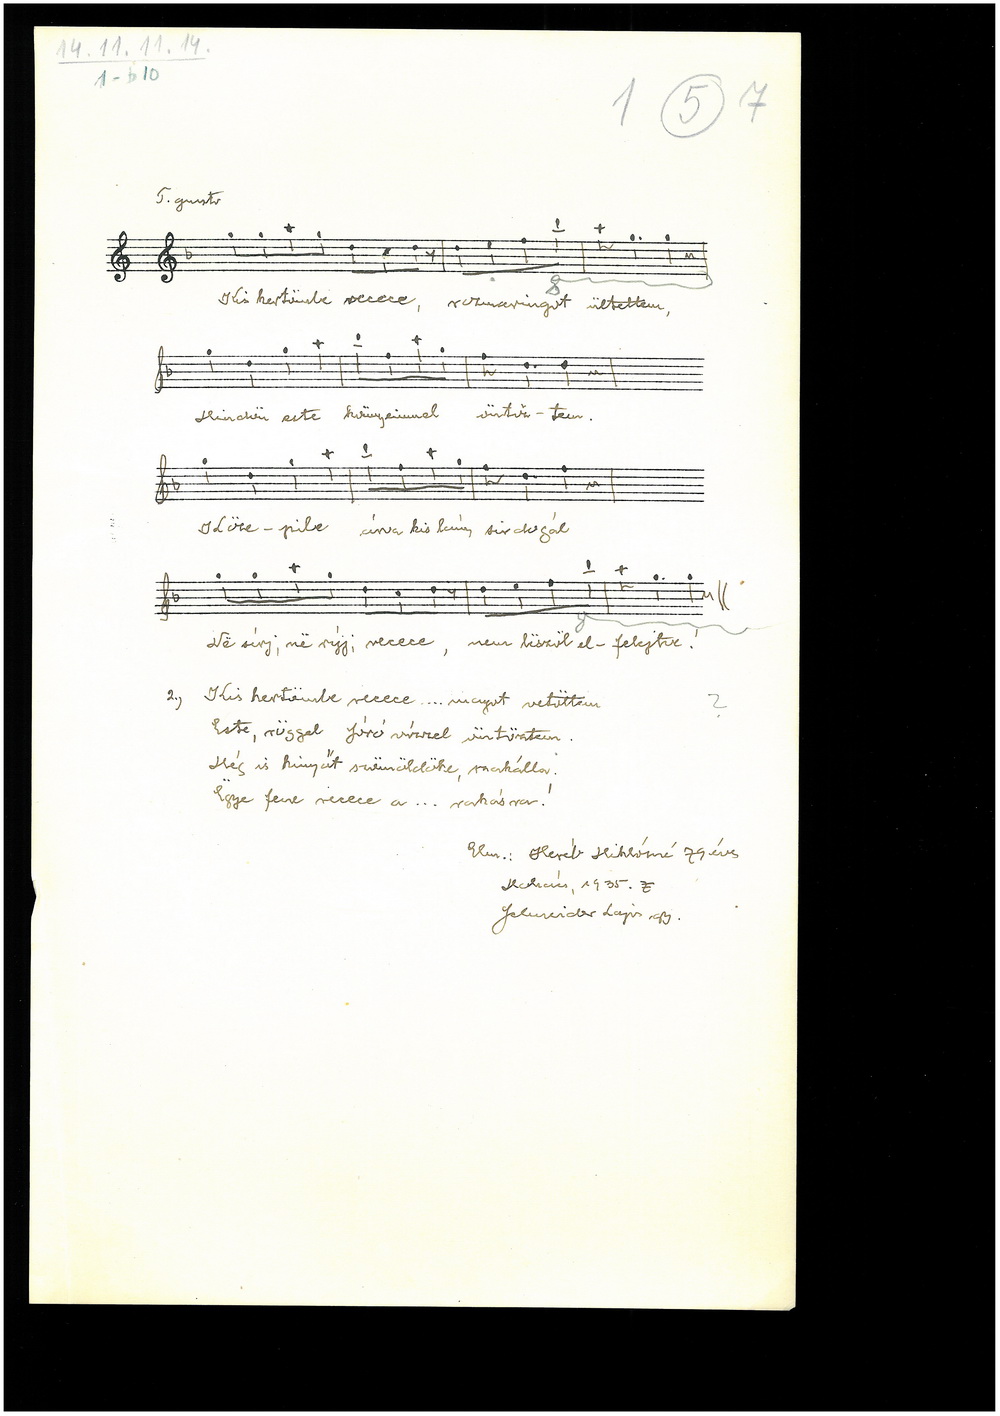 14. 11. 11. 14.
1 - b10
1 5 7
T. giusto
Kis kertömbe recece, rozmaringot ültettem,
Mindön este könnyeimmel öntöz - tem.
Köze - pibe árva kis lány sirdogál
Në sírj, në ríjj, recece, nem löszöl el - felejtve!
2., Kis kertömbe recece .... magot vetöttem
Este, röggel vérrel öntöztem.
Még is kinyőt szömöldöke,
Ögye fene recece a ...
?
Elm.: Keréb Miklósné 79 éves
1935. Z
Schneider Lajos